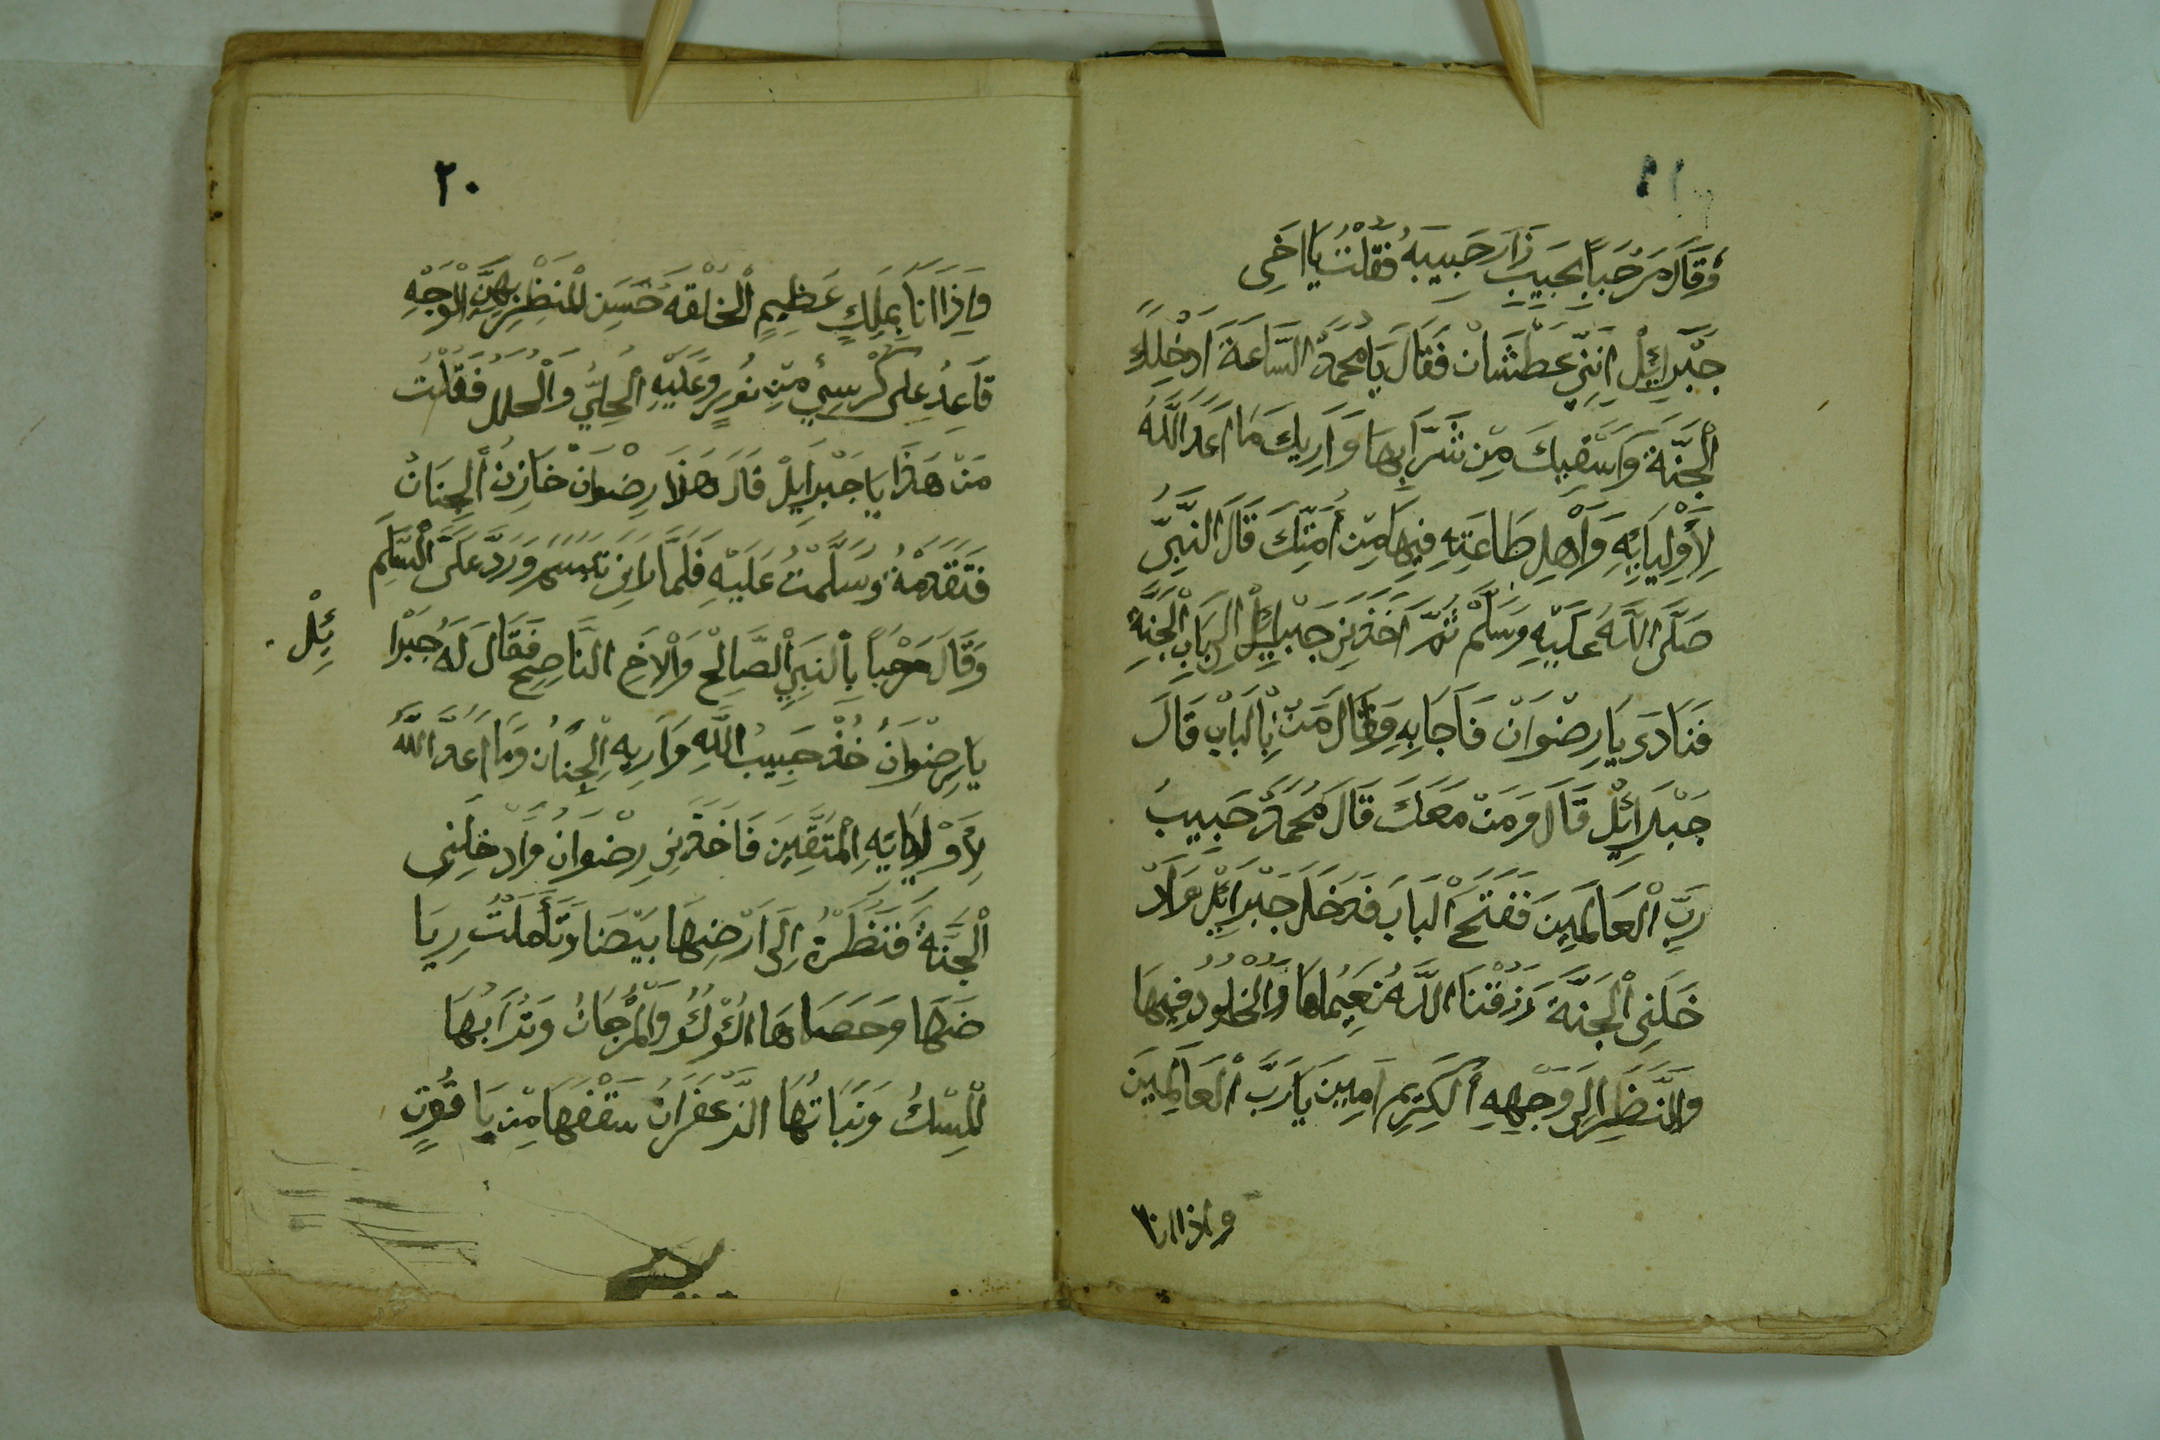 وَقَالَ مَرْحَبًا بِحَبِيبٍ زَارَ حَبِيبَهُ فَقُلْتُ يَا اخَى
جِبْرَائِيلْ اِنَنِّي عَطْشَانْ فَقَالَ يَا مُحَمَّدْ السَّاعَةَ اَدْخِلُكَ
الْجَنَّةَ وَاَسْقِيكَ مِنْ شَرَابِهَا وَاَرِيكَ مَا اَعَدَ اللَّهُ
لِأَوْلِيَايِهِ وَلْأَهْلِ طَاعَتِهِ فِيهَا مِنْ أُمَتِّكَ قَالَ النَّبِّى
صَلَّى اللَّهُ عَلَيْهِ وَسَلَّمْ ثُمَّ اَخَذَنِى جَبْرايِيلْ اِلَى بَابِ الْجَنَّةِ
فَنَادَى يَا رِضْوَانْ فَاَجَابِهِ وَقَالَ مَنْ بِالْبَابْ قَالَ
جَبْرَائِلْ قَالَ وَمَنْ مَعَكَ قَالَ مُحَمَّدْ حَبِيبُ
رَبِّ الْعَالَمِينَ فَفَتَحَ الْبَابَ فَدَخَلَ جَبْرَائِلْ وَاَدْ
خَلَنِى الْجَنَّةَ رَزَقْنَا اللَّهُ نَعِيمُهَا وَالْخُلُودُ فِيهَا
وَالنَّظَرِ اِلَى وَجْهِهِ الْكَرِيمِ آمِينَ يَا رَبَّ الْعَالَمِينَ
واذا انا
٢٠
وَاِذَا انَا بِمَلِكٍ عَظِيمٍ الْخَلْقَهِ حَسَنِ الْمَنْظَرِ بَهِىِّ الْوَجْهِ
قَاعِدُ عَلى كُرْسِيٍ مِنْ نُورٍ وَعَلَيْهِ الْحُلِيُّ وَالْحُلَلُ فَقُلْتُ
مَنْ هَذَا يَا جَبْرَايِلْ قَالَ هَذَا رِضْوَانْ خَازِنُ الْجِنَانْ
فَتَقَدَمْةُ وَسَلَّمْتُ عَلَيْهِ فَلَمَّا رَانِى تَبَسَّمَ وَرَدَّ عَلَىَّ السَّلَمِ
وَقَالَ مَرْحَبًا بِالنَبِيِ الصَّالِحْ وَالْاَخِ النَّاصِحْ فَقَالَ لَهُ جَبْرَا
ئِلْ
يَا رِضْوَانُ خُذْ حَبِيبُ اللَّهِ وَاَرِيهِ الْجِنَانْ وَمَا اَعَدَّ اللَّهُ
لِأَوْلِيَايَهِ الْمُتَقِّينَ فَاَخَذَنِى رِضْوَانُ وَاَدْخَلَنِى
الْجَنَّةَ فَنَظَرْةُ اِلَى اَرْضِهَا بَيْضَا وَتَأَمَلْتُ رِيَا
ضَهَا وَحَصَاهَا اللُّؤْلُؤُ وَالْمَرْجَانُ وَتُرَابُهَا
الْمِسْكُ وَنَبَاتُهَا الزَّعْفَرَانُ سَقْفُهَا مِنْ يَاقُوتٍ